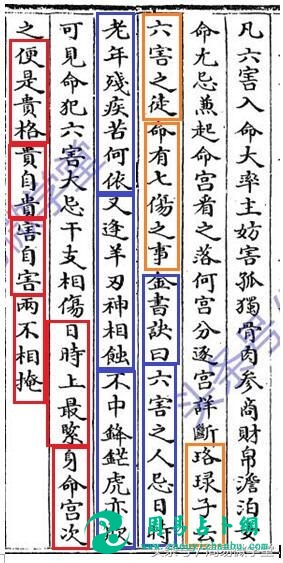 凡六害入命大率主妨害孤獨骨肉参商財帛澹泊女
命尤忌兼起命宮看之落何宮分逐宮詳斷珞琭子云
六害之徒命有七傷之事金書訣曰六害之人忌日時
老年殘疾苦何依又逢羊刃神相蝕不中鋒鋩虎亦欺
可見命犯六害大忌干支相傷日時上最緊身命宮次
之便是貴格貴自貴害自害兩不相掩
周易占卜網